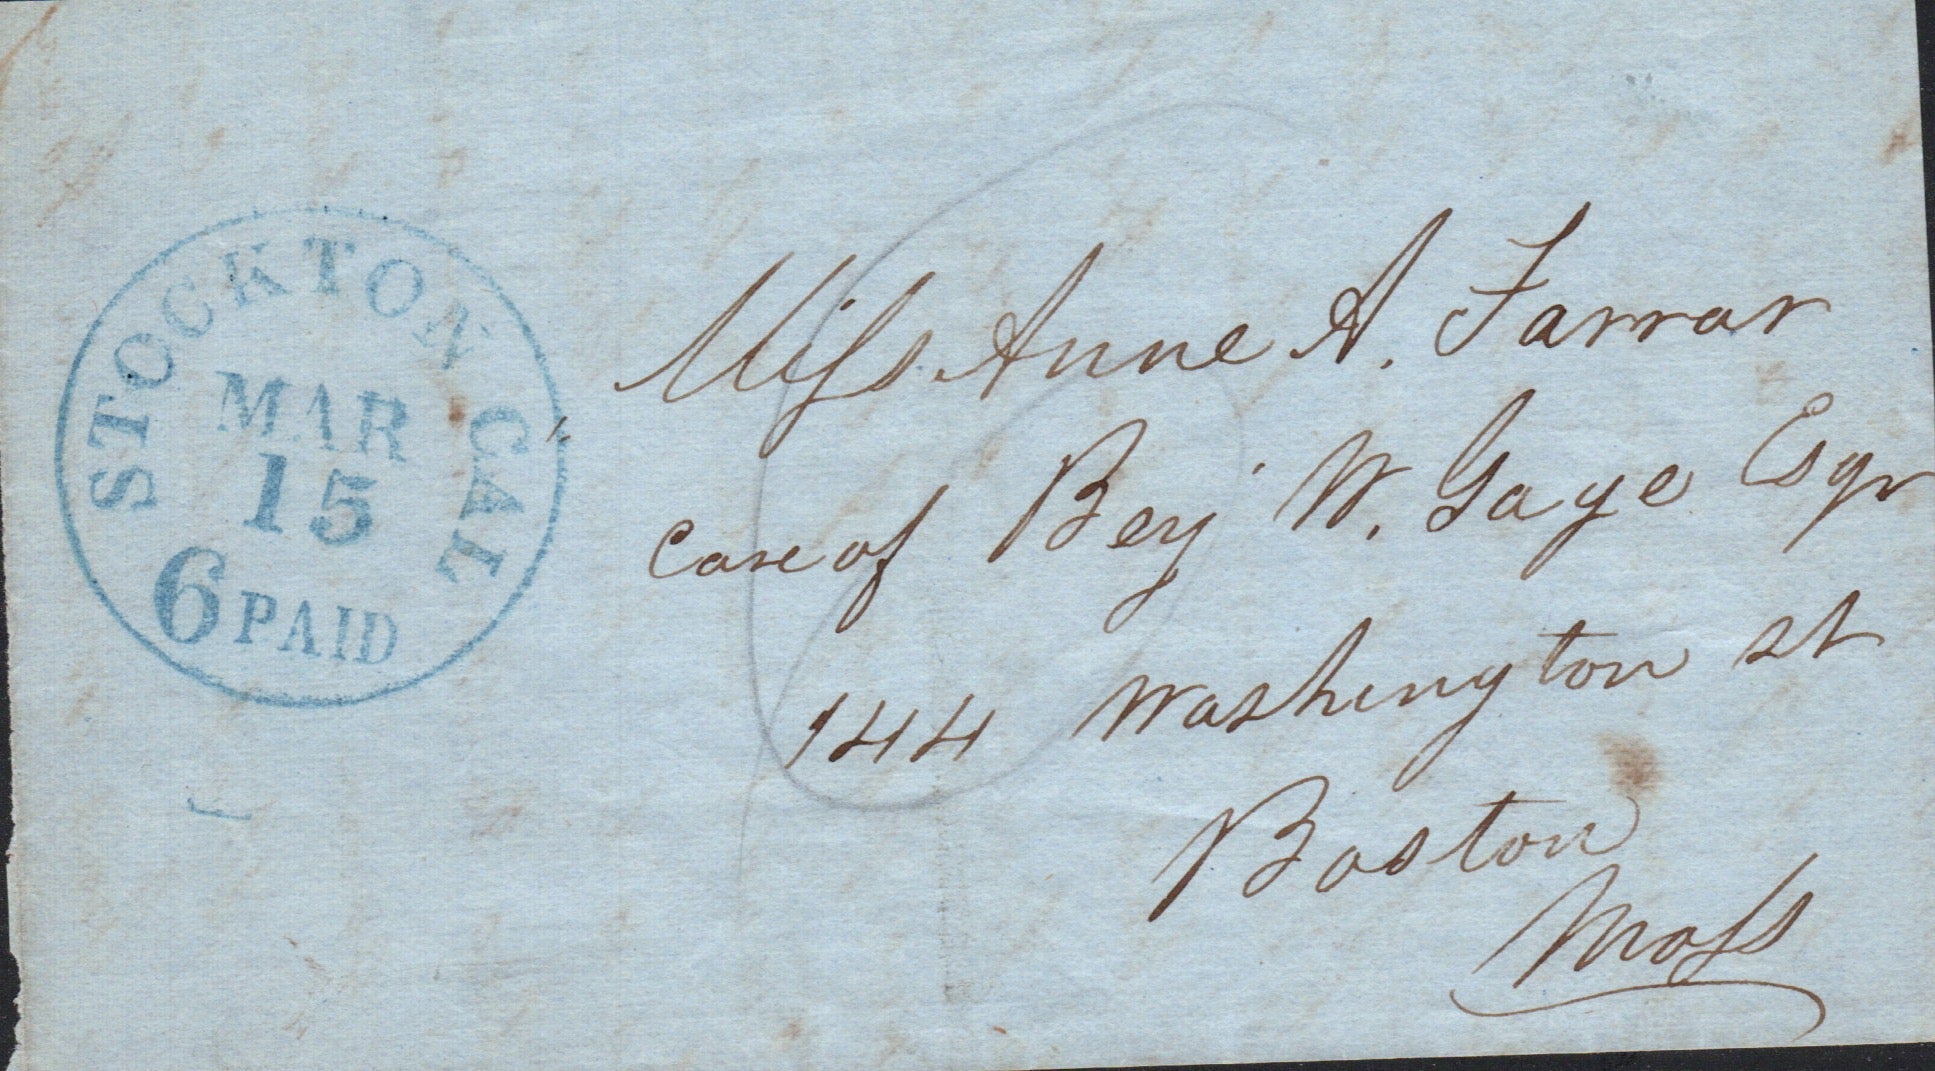 STOCKTON CAL
MAR
15
6 PAID
Miss Anne A. Farrar
Care of Benj W. Gage Esqr
144 Washington st
Boston
Mass